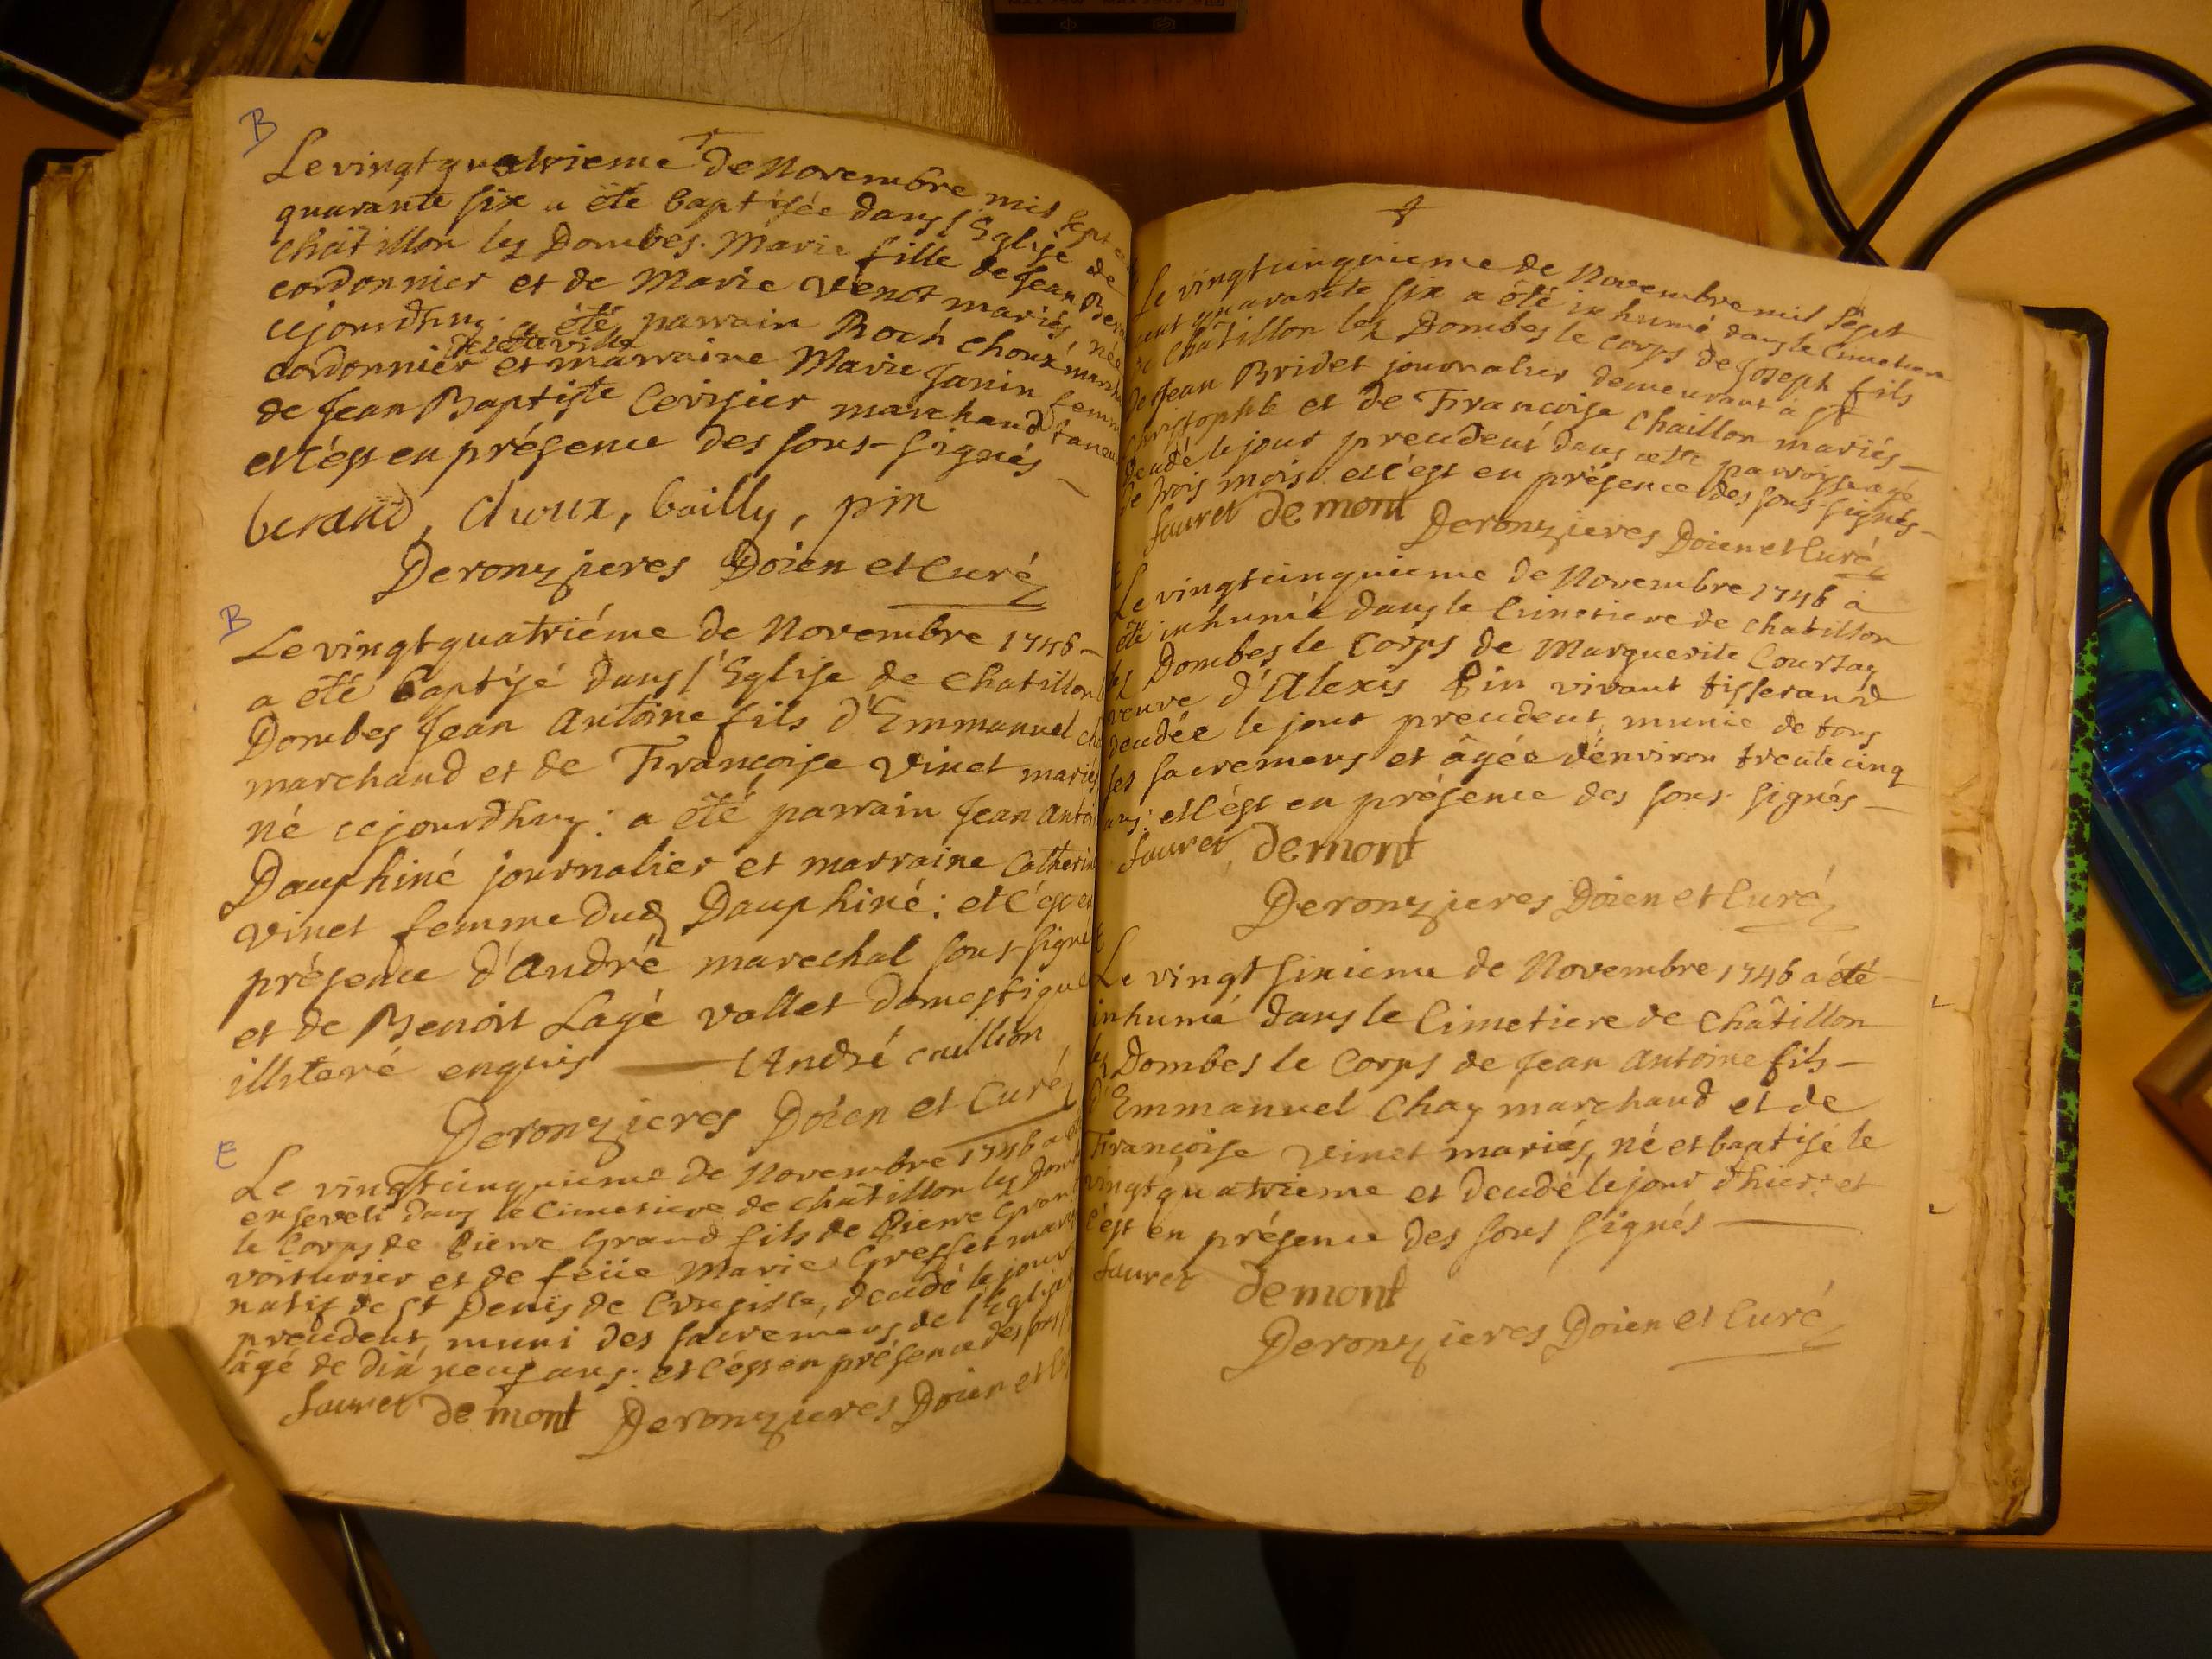 B
Le vingtquatrieme de Novembre mil sept
quarante six a été baptisée dans l'Eglise de
Châtillon les Dombes. Marie fille de Jean
cordonnier et de Marie Venot mariés, née
cejourdhuy: a été parrain Roch Choux
de cette ville
cordonnier et marraine Marie Janin
de Jean Baptiste Cerisier marchand
et c'est en présence des sous-signés
berand, choux, bailly, pin
Deronzieres Doien et Curé
B
Le vingtquatriéme de Novembre 1746
a été baptisé dans l'Eglise de Chatillon
Dombes Jean Antoine fils d'Emmanuel
marchand et de Françoise Vinet mariés
né cejourdhuy: a été parrain Jean
Dauphiné journalier et marraine
Vinet femme dud Dauphiné: et c'est
présence d'André marechal sous-signé
et de Benoit Lagé vallet domestique
illiteré enquis — André caillion
Deronzieres Doien et Curé
E
Le vingtcinquieme de Novembre 1746 a
enseveli dans le Cimetiere de Châtillon les
le Corps de Pierre Grand fils de Pierre
voiturier et de feüe Marie Gresset
natif de St Denis de , decedé le jour
precedent, muni des sacremens de l'Eglise
âgé de dix neuf ans: et c'est en présence des
sauret demont Deronzieres Doien et
Le vingtcinquieme de Novembre mil sept
cent quarante six a été inhumé dans le Cimetiere
de Châtillon les Dombes le corps de Joseph fils
de Jean Bridet journalier demeurant à St
Christophle et de Françoise Chaillon mariés
decedé le jour precedent dans cette parroisse agé
de trois mois: et c'est en présence des sous-signés
sauret demont Deronzieres Doien et Curé
Le vingtcinquieme de Novembre 1746 a
été inhumé dans le Cimetiere de Chatillon
les Dombes le Corps de Marguerite
veuve d'Alexis Pin vivant tisserand
decedée le jour precedent, munie de tous
ses sacremens et âgée d'environ trente cinq
ans: et c'est en présence des sous-signés
sauret demont
Deronzieres Doien et Curé
Le vingt sixieme de Novembre 1746 a été
inhumé dans le Cimetiere de Châtillon
les Dombes le Corps de Jean Antoine fils
d'Emmanuel Chay marchand et de
Françoise Vinet mariés, né et baptisé le
vingtquatrieme et decedé le jour d'hier: et
c'est en présence des sous signés
sauret demont
Deronzieres Doien et Curé